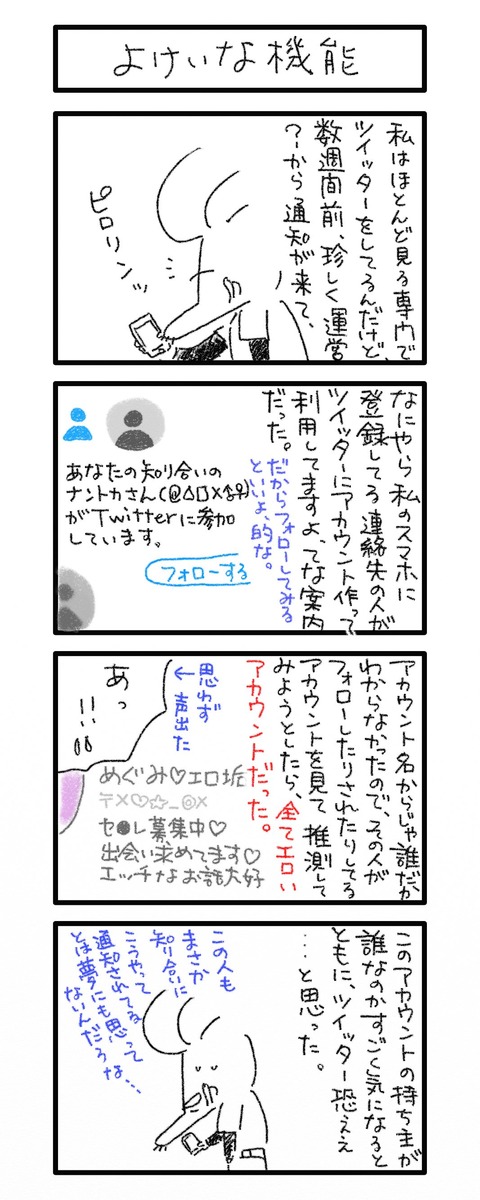 よけいな機能
私はほとんど見る専門で
ツイッターをしてるんだけど、
数週間前、珍しく運営
?ーから通知が来て、
ピロリンッ
なにやら私のスマホに
登録してる連絡先の人が
ツイッターにアカウント作って
利用してますよ、てな案内
だった。
だからフォローしてみる
といいよ、的な。
あなたの知り合いの
ナントカさん(@△□×&♀)
がTwitterに参加
しています。
フォローする
アカウント名からじゃ誰だか
わからなかったので、その人が
フォローしたりされたりしてる
アカウントを見て推測して
みようとしたら、全てエロい
アカウントだった。
思わず
← 声出た
あっ
!!
めぐみ♡エロ垢
〒×♡☆_◎×
セ●レ募集中♡
出会い求めてます♡
エッチなお話大好
このアカウントの持ち主が
誰なのかすごく気になると
ともに、ツイッター恐ええ
…と思った。
この人も
まさか
知り合いに
こうやって
通知されてる
とは夢にも思って
ないんだろな…